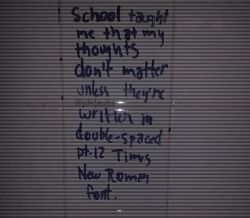 School taught
me that my
thoughts
don't matter
unless they're
written in
double-spaced
pt. 12 Times
New Roman
font.